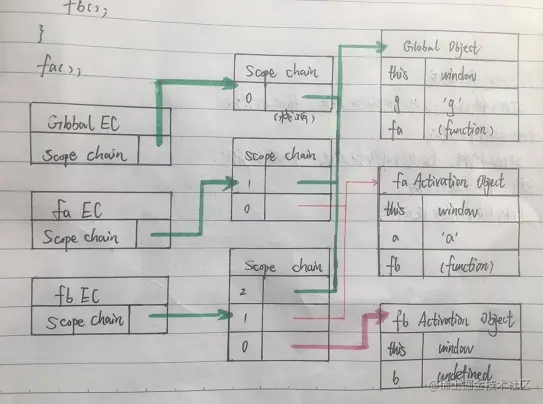 fb();
}
fa();
Global EC
Scope chain
fa EC
Scope chain
fb EC
Scope chain
Scope chain
0
Scope chain
1
0
Scope chain
2
1
0
Global Object
this window
g 'g'
fa (function)
fa Activation Object
this window
a 'a'
fb (function)
fb Activation Object
this window
b undefined
@稀土掘金技术社区